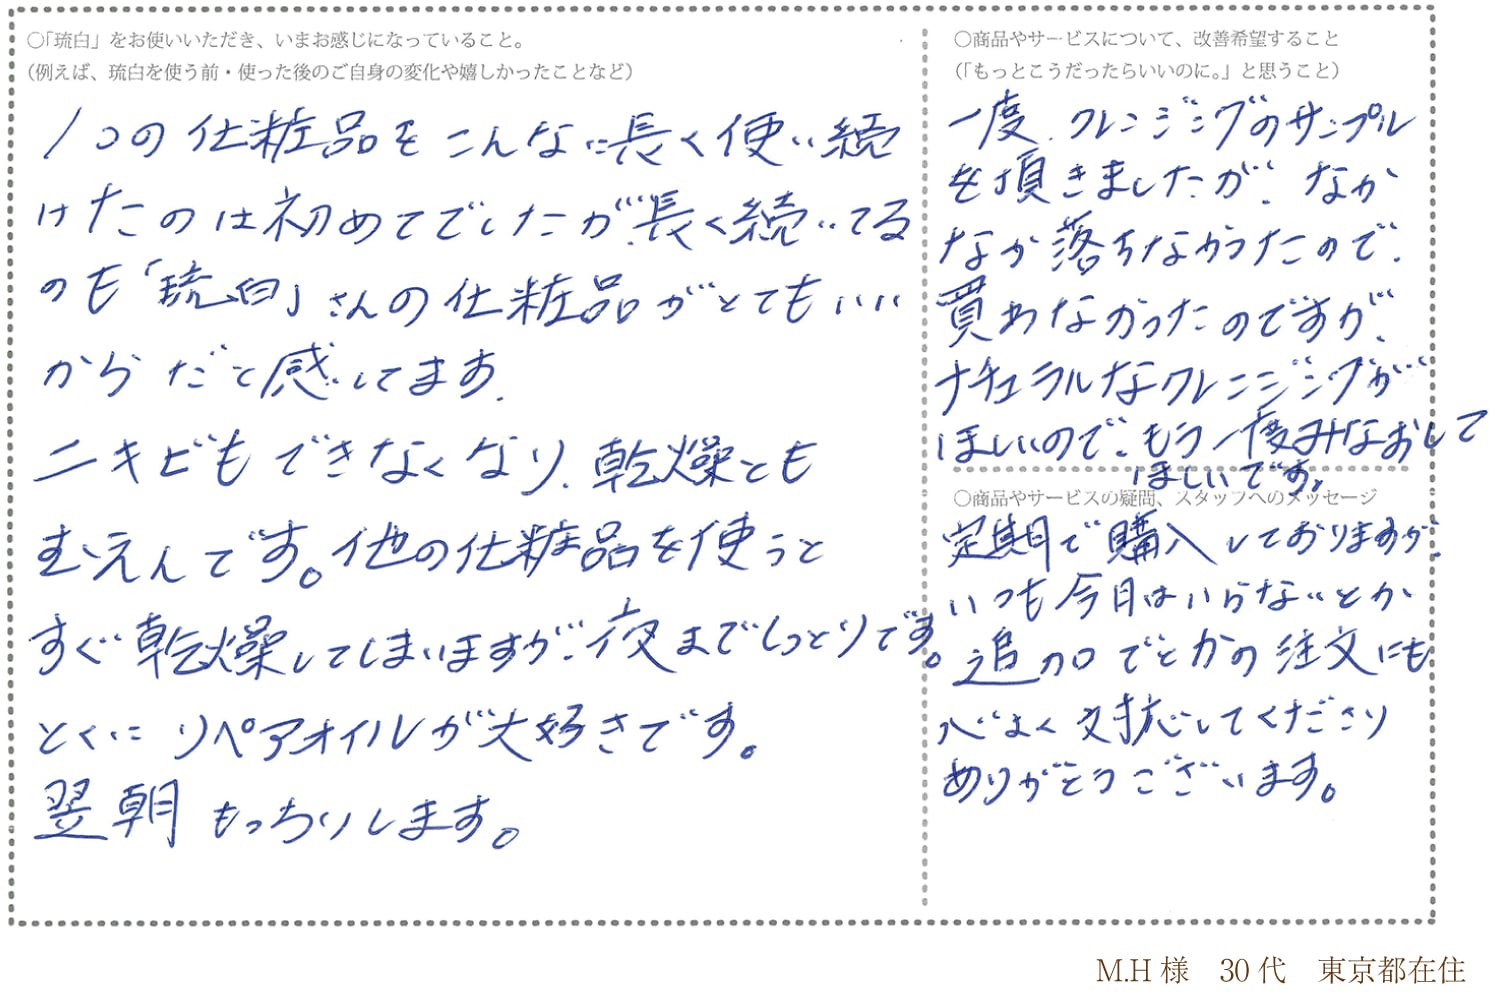 ○「琉白」をお使いいただき、いまお感じになっていること。
（例えば、琉白を使う前・使った後のご自身の変化や嬉しかったことなど）
1つの化粧品をこんなに長く使い続
けたのは初めてでしたが、長く続いてる
のも「琉白」さんの化粧品がとてもいい
からだと感じてます。
ニキビもできなくなり、乾燥とも
むえんです。他の化粧品を使うと
すぐ乾燥してしまいますが、夜までしっとりです。
とくにリペアオイルが大好きです。
翌朝もっちりします。
○商品やサービスについて、改善希望すること
（「もっとこうだったらいいのに。」と思うこと）
一度、クレンジングのサンプル
を頂きましたが、なか
なか落ちなかったので、
買わなかったのですが、
ナチュラルなクレンジングが
ほしいので、もう一度みなおして
ほしいです。
○商品やサービスの疑問、スタッフへのメッセージ
定期で購入しておりますが、
いつも今月はいらないとか
追加でとかの注文にも
心よく対応してくださり
ありがとうございます。
M.H 様　30 代　東京都在住